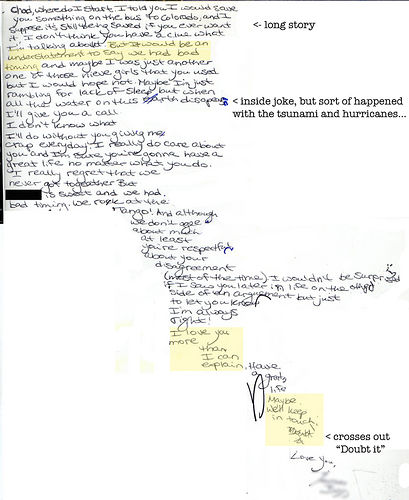 Chad, where do I start. I told you I would save
you something on the bus to Colorado, and I
suppose it's still being saved if you ever want
it. I don't think you have a clue what
I'm talking about. But it would be an
understatement to say we had bad
timing and maybe I was just another
one of those naive girls that you used
but I would hope not. Maybe I'm just
rambling for lack of sleep but when
all the water on this earth disapears
I'll give you a call.
I don't know what
I'll do without you giving me
crap everyday. I really do care about
you and I'm sure you're gonna have a
great life no matter what you do.
I really regret that we
never got together But
is sweet and we had
bad timing. We rock at the
Tango! And although
we don't agree
about much
at least
you're respectful
about your
disagreement
(most of the time). I wouldn't be surprised
if I saw you later in life on the other
side of an arguement but just
to let you know
I'm always
right!
I love you
more
than
I can
explain. Have
a
great
life
Maybe
We'll keep
in touch.
Doubt
it
Love you,
< long story
< inside joke, but sort of happened
with the tsunami and hurricanes...
< crosses out
"Doubt it"